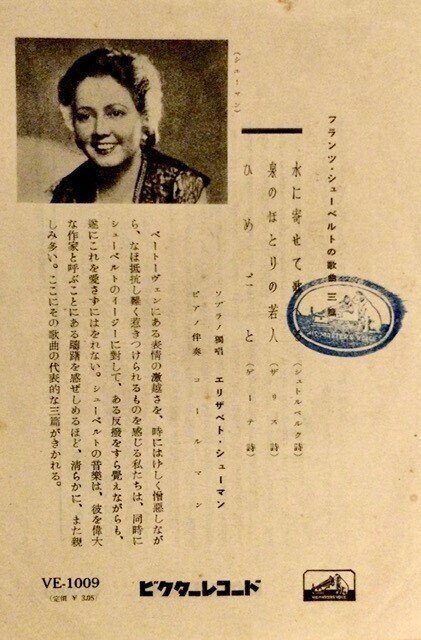 フランツ・シューベルトの歌曲 三篇
水に寄せて歌 (シュトルベルク詩)
泉のほとりの若人 (ザリス詩)
ひめごと (ゲーテ詩)
"HIS MASTER'S VOICE"
ソプラノ獨唱 エリザベト・シューマン
ピアノ伴奏 コールマン
(シューマン)
ベートーヴェンにある表情の激越さを、時にはけしく憎惡しなが
ら、なほ抵抗し難く惹きつけられるものを感じる私たちは、同時に
シューベルトのイージーに對して、ある反撥をすら覺えながらも、
遂にこれを愛さずにはをれない。シューベルトの音樂は、彼を偉大
な作家と呼ぶことにある躊躇を感ぜしめるほど、淸らかに、また親
しみ多い。ここにその歌曲の代表的な三篇がきかれる。
VE-1009
(定價 ¥ 3.05)
ビクターレコード
"HIS MASTER'S VOICE"